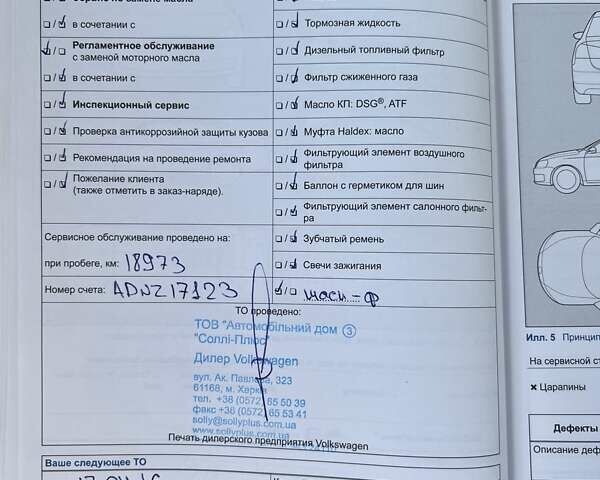 в сочетании с
Регламентное обслуживание
с заменой моторного масла
в сочетании с
Инспекционный сервис
Проверка антикоррозийной защиты кузова
Рекомендация на проведение ремонта
Пожелание клиента
(также отметить в заказ-наряде).
Тормозная жидкость
Дизельный топливный фильтр
Фильтр сжиженного газа
Масло КП: DSG®, ATF
Муфта Haldex: масло
Фильтрующий элемент воздушного
фильтра
Баллон с герметиком для шин
Фильтрующий элемент салонного фильт-
ра
Зубчатый ремень
Свечи зажигания
масл-ф
Сервисное обслуживание проведено на:
при пробеге, км: 18973
Номер счета: ADNZ17123
ТО проведено:
ТОВ "Автомобільний дім 3
"Соллі-Плюс"
Дилер Volkswagen
вул. Ак. Павлова, 323
61168, м. Харків
тел. +38 (0572) 65 50 39
факс +38 (0572) 65 53 41
solly@sollyplus.com.ua
www.sollyplus.com.ua
Печать дилерского предприятия Volkswagen
Ваше следующее ТО
Илл. 5 Принцип
На сервисной ст
× Царапины
Дефекты
Описание деф